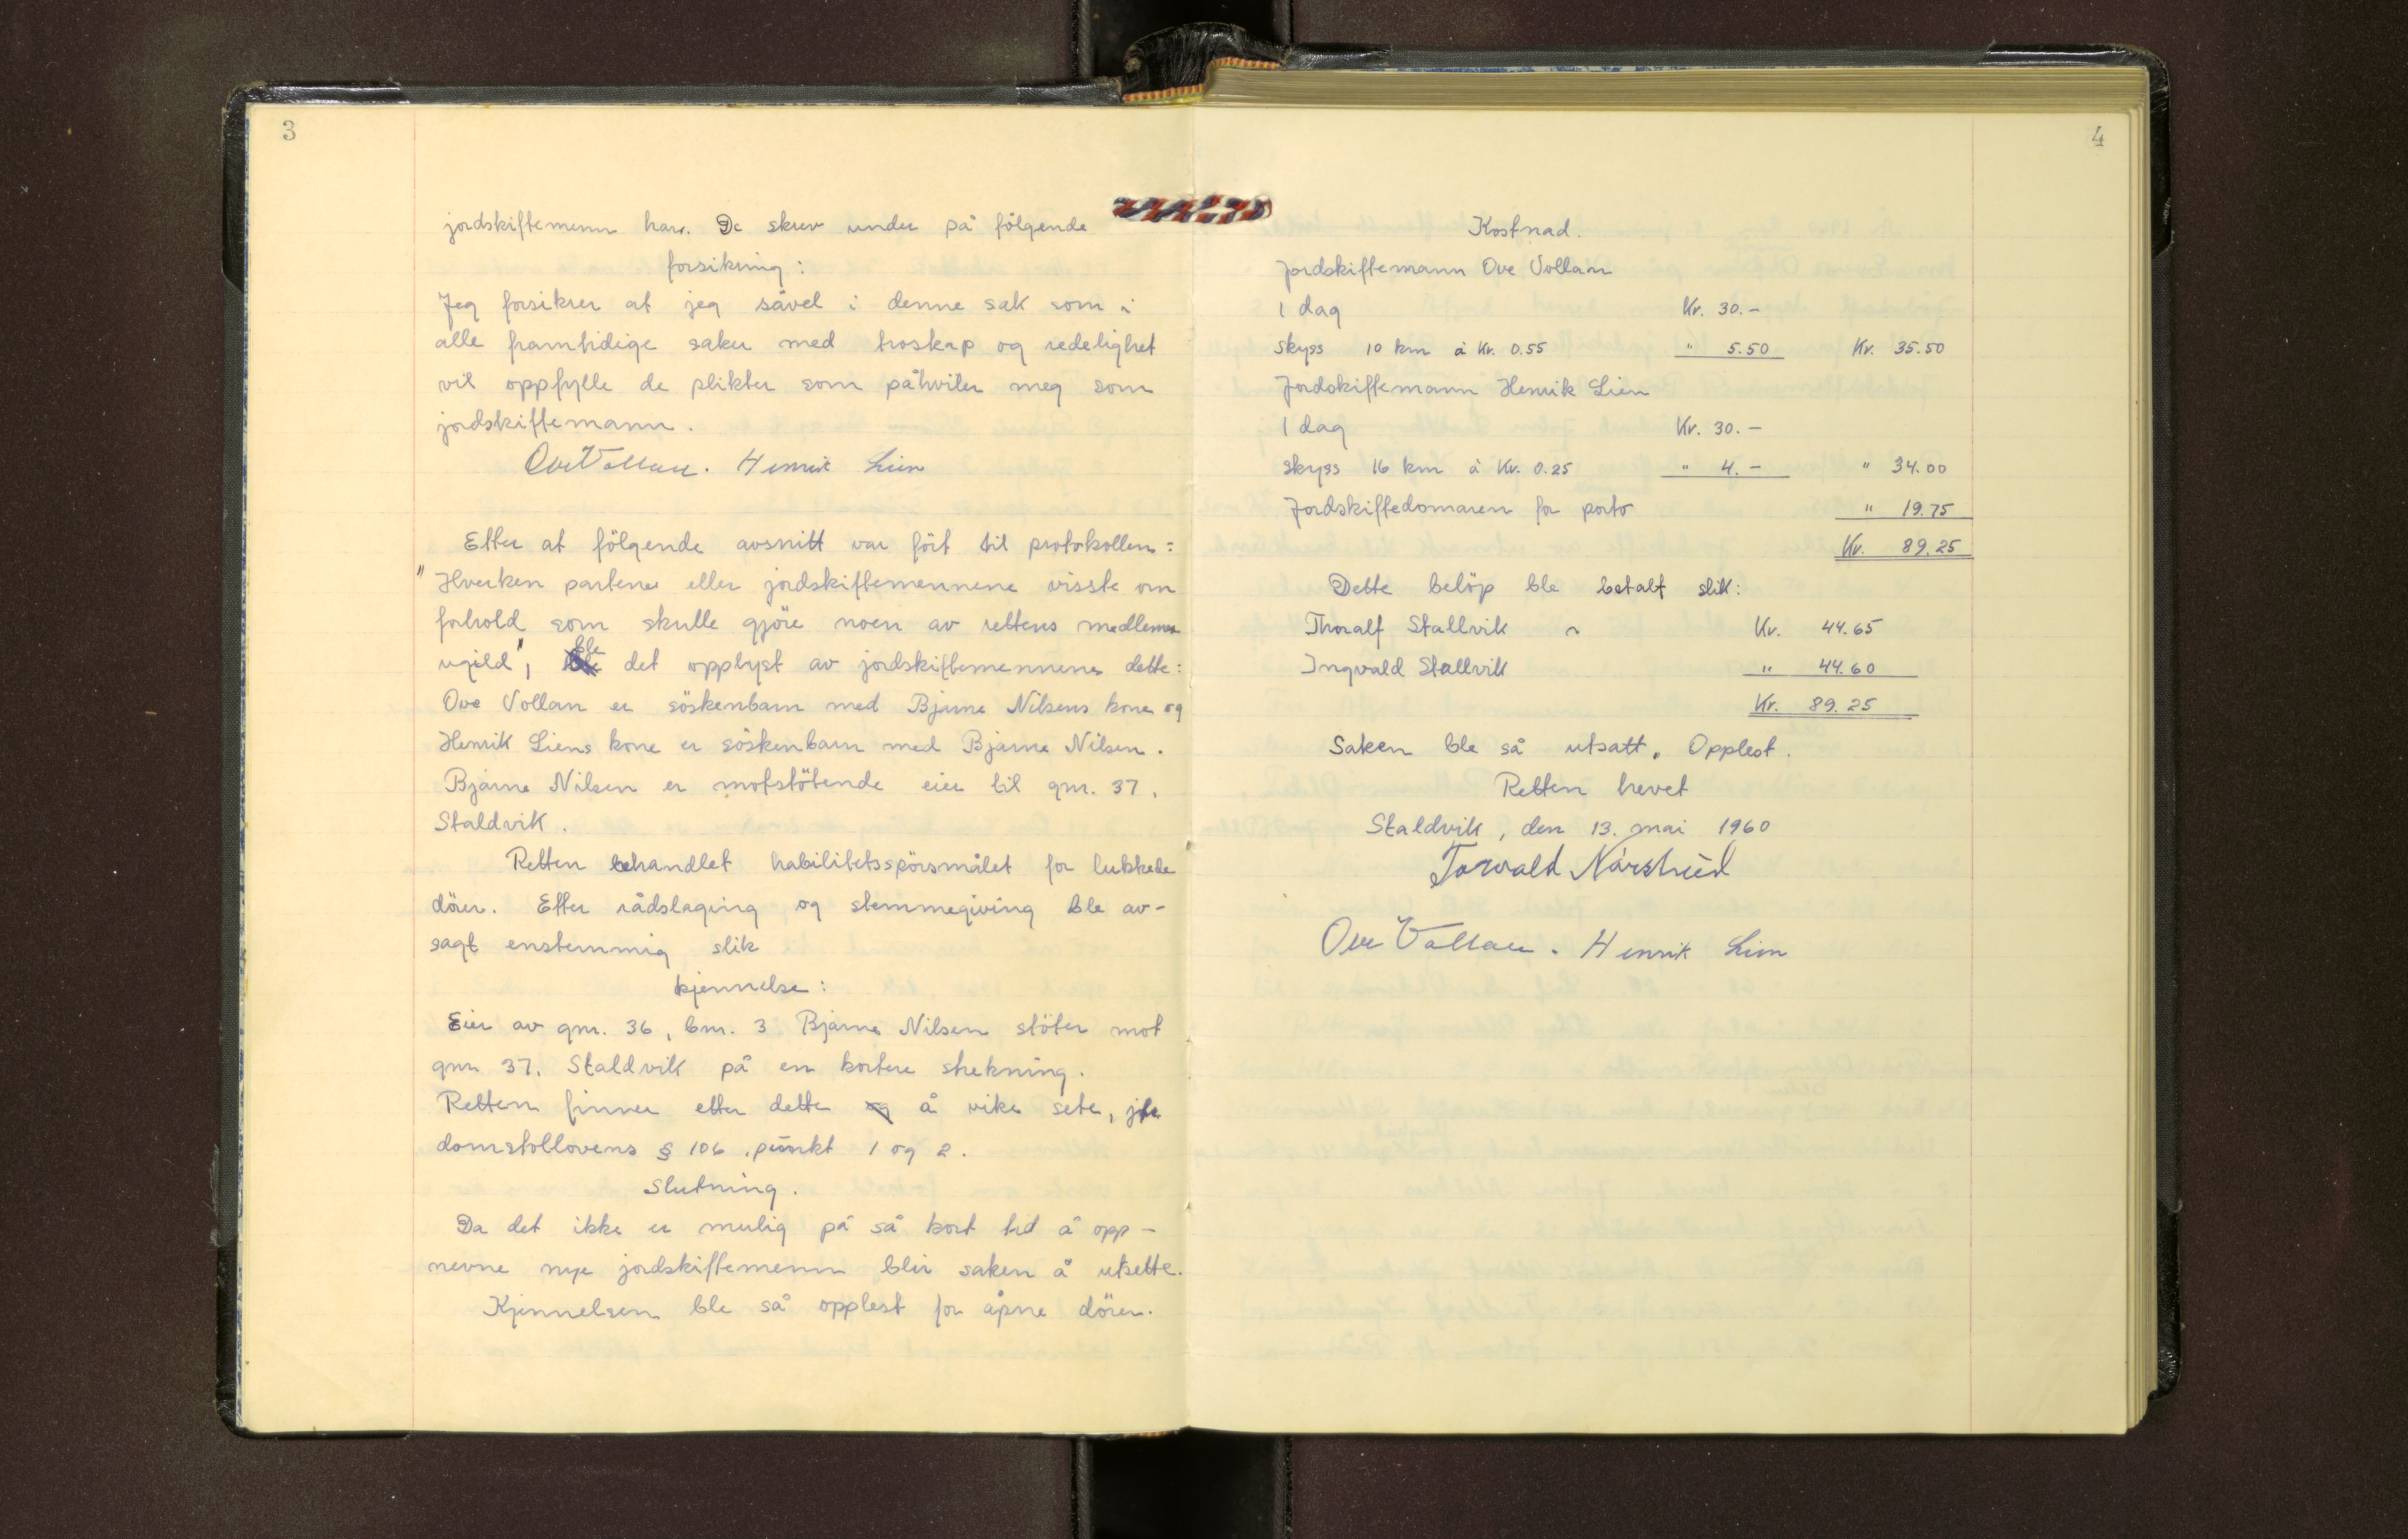 3
jordskiftemenn har. De skrev under på fölgende
forsikring:
Jeg forsikrer at jeg såvel i denne sak som i
alle framtidige saker med troskap og redelighet
vil oppfylle de plikter som påhviler meg som
jordskiftemann.
Ove Vollan. Henrik Lien
Etter at fölgende avsnitt var fört til protokollen:
"Hverken partene eller jordskiftemennene visste om
forhold som skulle gjöre noen av rettens medlemer
ugild", ble det opplyst av jordskiftemennene dette:
Ove Vollan er söskenbarn med Bjarne Nilsens kone og
Henrik Liens kone er söskenbarn med Bjarne Nilsen.
Bjarne Nilsen er motstötende eier til gnr. 37,
Staldvik.
Retten behandlet habilitetsspörsmålet for lukkede
dörer. Etter rådslaging og stemmegiving ble av-
sagt enstemmig slik
kjennelse:
Eier av gnr. 36, bnr. 3 Bjarne Nilsen stöter mot
gnr. 37, Staldvik på en kortere strekning.
Retten finner etter dette å vike sete, jfr
domstollovens § 106, punkt 1 og 2.
Slutning.
Da det ikke er mulig på så kort tid å opp-
nevne nye jordskiftemenn blir saken å utsette.
Kjennelsen ble så opplest for åpne dörer.
4
Kostnad.
Jordskiftemann Ove Vollan
1 dag Kr. 30.-
skyss 10 km à Kr. 0.55 " 5.50 Kr. 35.50
Jordskiftemann Henrik Lien
1 dag Kr. 30.-
skyss 16 km à Kr. 0.25 " 4.- " 34.00
Jordskiftedomaren for porto " 19.75
Kr. 89.25
Dette belöp ble betalt slik:
Thoralf Stallvik Kr. 44.65
Ingvald Stallvik " 44.60
Kr. 89.25
Saken ble så utsatt. Opplest.
Retten hevet
Staldvik, den 13. mai 1960
Torvald
Ove Vollan. Henrik Lien